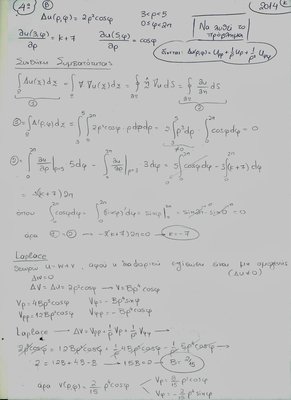 4º β 2014
Δu(ρ,φ) = 2ρ²cosφ 3<ρ<5
0≤φ<2π
Να λυθεί το πρόβλημα.
∂u(3,φ)/∂ρ = κ+7 ∂u(5,φ)/∂ρ = cosφ
Δu(ρ,φ) = Uρρ + 1/ρ Uρ + 1/ρ² Uφφ
Συνθήκη Συμβατότητας:
∫ Δu(x) dx = ∫ ∇·∇u(x) dx = ∮ ∇u dS = ∮ ∂u/∂n dS
① ②
① = ∫ Δ(ρ,φ) dx = ∫₀^2π ∫₃⁵ 2ρ²cosφ · ρ dρ dφ = 2 ∫₃⁵ ρ³ dρ · ∫₀^2π cosφ dφ = 0
② = ∫₀^2π ∂u/∂ρ |ρ=5 5dφ - ∫₀^2π ∂u/∂ρ |ρ=3 3dφ = 5 ∫₀^2π cosφ dφ - 3 ∫₀^2π (κ+7) dφ
= -3(κ+7) 2π
όπου ∫₀^2π cosφ dφ = ∫₀^2π (sinφ)' dφ = sinφ |₀^2π = sin2π - sin0 = 0
άρα ① = ② → -3(κ+7) 2π = 0 → κ = -7
Laplace
u = w + v, αφού η διαφορική εξίσωση είναι μη ομογενής
Δw = 0 (Δu ≠ 0)
ΔV = Δu = 2ρ²cosφ → V = Bρ⁴cosφ
Vρ = 4Bρ³cosφ Vφ = -Bρ⁴sinφ
Vρρ = 12Bρ²cosφ Vφφ = -Bρ⁴cosφ
Laplace → ΔV = Vρρ + 1/ρ Vρ + 1/ρ² Vφφ →
2ρ²cosφ = 12Bρ²cosφ + 1/ρ 4Bρ³cosφ - 1/ρ² Bρ⁴cosφ →
2 = 12B + 4B - B → 15B = 2 → B = 2/15
άρα v(ρ,φ) = 2/15 ρ⁴cosφ Vρ = 8/15 ρ³cosφ
Vφ = -2/15 ρ⁴sinφ